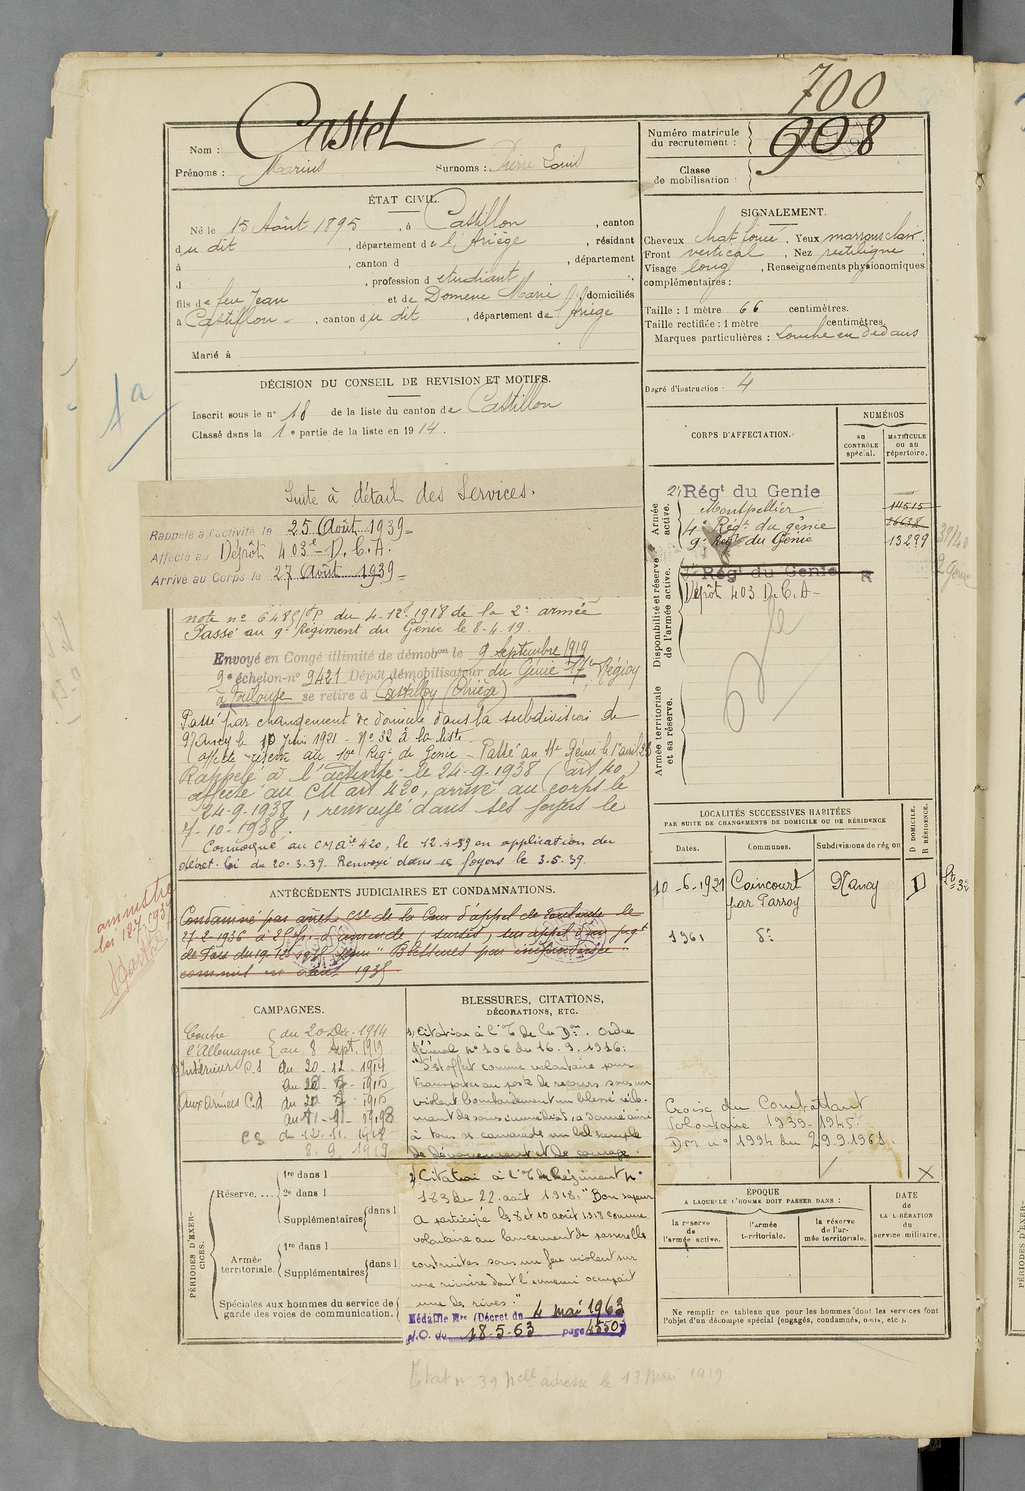 700
Numéro matricule du recrutement : 908
Nom : Castel
Prénoms : Marius Surnoms : Pierre Louis
Classe de mobilisation :
ÉTAT CIVIL.
Né le 15 Août 1895, à Castillon, canton
du dit, département de l'Ariège, résidant
à , canton d , département
d , profession d etudiant
fils de feu Jean et de Domenc Marie, domiciliés
à Castillon, canton du dit, département de l'Ariège
Marié à
DÉCISION DU CONSEIL DE REVISION ET MOTIFS.
Inscrit sous le n° 18 de la liste du canton de Castillon
Classé dans la 1e partie de la liste en 1914.
1a
Suite à détail des Services.
Rappelé à l'activité le 25 Août 1939
Affecté au Dépôt 403e D.C.A.
Arrivé au Corps le 27 Août 1939
note n° 6485/P du 4.12.1918 de la 2e armée
Passé au 9e Régiment du Génie le 8-4-19.
Envoyé en Congé illimité de démobon le 9 Septembre 1919
9e échelon n° 9421 Dépôt démobilisateur du Génie 17e Région
à Toulouse se retire à Castillon (Ariège)
Passé par changement de domicile dans la subdivision de
Nancy le 10 Juin 1921 - N° 32 à la liste
affecté réserve au 10e Régt de Génie - Passé au 11e Génie le 1er avril 23
Rappelé à l'activité le 24-9-1938 (art 40)
affecté au CM art 420, arrivé au corps le
24-9-1938, renvoyé dans ses foyers le
7-10-1938.
Convoqué au CM Aie 420, le 12-4-39 en application du
décret-loi du 20-3-39. Renvoyé dans ses foyers le 3.5.39.
ANTÉCÉDENTS JUDICIAIRES ET CONDAMNATIONS.
Condamné par arrêt Cel de la Cour d'appel de Toulouse le
27-2-1936 à 25 fr. d'amende (sursis) sur appel d'un jugt
de Foix du 19-12-1935 pour "Blessures par imprudence"
commis en août 1935
amnistie
loi 12.7.1937
CAMPAGNES.
Contre (du 20 Déc. 1914
l'Allemagne (au 8 Sept. 1919
Intérieur C.S du 20-12-1914
au 20-5-1915
Aux armées C.d du 20-5-1915
au 11-11-1918
CS du 12.11.1918
8.9.1919
BLESSURES, CITATIONS, DÉCORATIONS, ETC.
1) Citation à l'O de la Don. Ordre
Général n° 106 du 16.9.1916:
"S'est offert comme volontaire pour
transporter au poste de secours sous un
violent bombardement un blessé récla-
mant des soins immédiats, a donné ainsi
à tous ses camarades un bel exemple
de dévouement et de courage.
2) Citation à l'O de Régiment n°
183 du 22 août 1918: "Bon sapeur
A participé les 8 et 10 août 1918 comme
volontaire au lancement de passerelles
construites sous un feu violent sur
une rivière dont l'ennemi occupait
une des rives."
Médaille Mre (Décret du 4 mai 1963
J.O. du 18-5-63 page 4550)
PÉRIODES D'EXERCICES.
Réserve....
1re dans l
2e dans l
Supplémentaires dans l
Armée territoriale.
1re dans l
Supplémentaires dans l
Spéciales aux hommes du service de garde des voies de communication.
Etat n° 39 Nelle adresse le 13 Mai 1919
SIGNALEMENT.
Cheveux chat foncé. Yeux marrons clair.
Front vertical, Nez rectiligne,
Visage long, Renseignements physionomiques
complémentaires :
Taille : 1 mètre 66 centimètres.
Taille rectifiée : 1 mètre centimètres.
Marques particulières : Louche en dedans
Degré d'instruction : 4
CORPS D'AFFECTATION.
NUMÉROS
au CONTRÔLE spécial.
MATRICULE ou au répertoire.
Armée active.
2e Régt du Genie
Montpellier 14515
4e Régt du génie
9e Régt du Génie 13299
39/40
2 Génie
Disponibilité et réserve de l'armée active.
Régt du Genie
Dépôt 403 D.C.A-
Armée territoriale et sa réserve.
LOCALITÉS SUCCESSIVES HABITÉES
PAR SUITE DE CHANGEMENTS DE DOMICILE OU DE RÉSIDENCE
D DOMICILE. R RÉSIDENCE.
Dates. Communes. Subdivisions de région
10-6-1921 Coincourt par Parroy Nancy D
1961 do
Croix du Combattant
Volontaire 1939-1945.
Don n° 1994 du 29.9.1961.
ÉPOQUE
A LAQUELLE L'HOMME DOIT PASSER DANS :
la réserve de l'armée active.
l'armée territoriale.
la réserve de l'armée territoriale.
DATE DE LA LIBÉRATION du service militaire.
Ne remplir ce tableau que pour les hommes dont les services font
l'objet d'un décompte spécial (engagés, condamnés, omis, etc.).